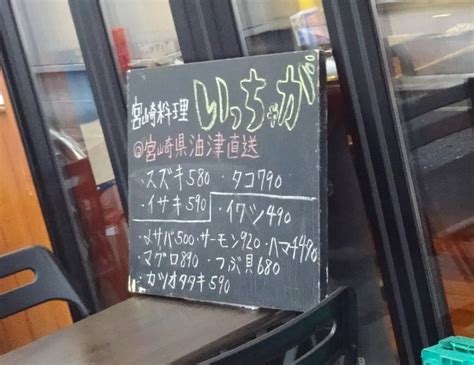 宮崎料理 いっちゃが
@宮崎県油津直送
・スズキ580 ・タコ790
・イサキ590 ・イワシ490
・〆サバ500・サーモン920・ハマチ490
・マグロ890 ・つぶ貝680
・カツオタタキ590